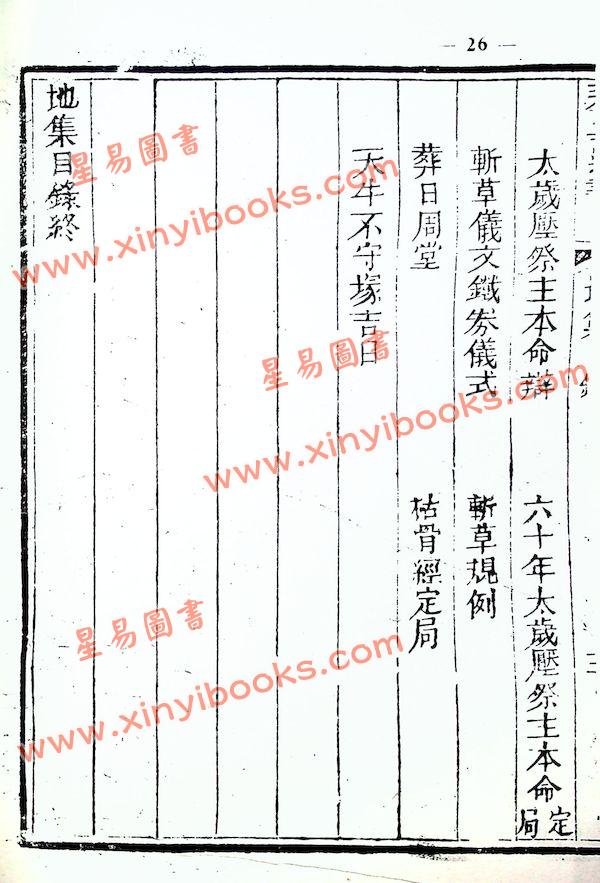 — 26 —
太歲壓祭主本命辯
六十年太歲壓祭主本命定局
斬草儀文鐵券儀式
斬草規例
葬日周堂
枯骨經定局
天牛不守塚吉日
地集目錄終
星易圖書
www.xinyibooks.com
星易圖書
www.xinyibooks.com
星易圖書
www.xinyibooks.com